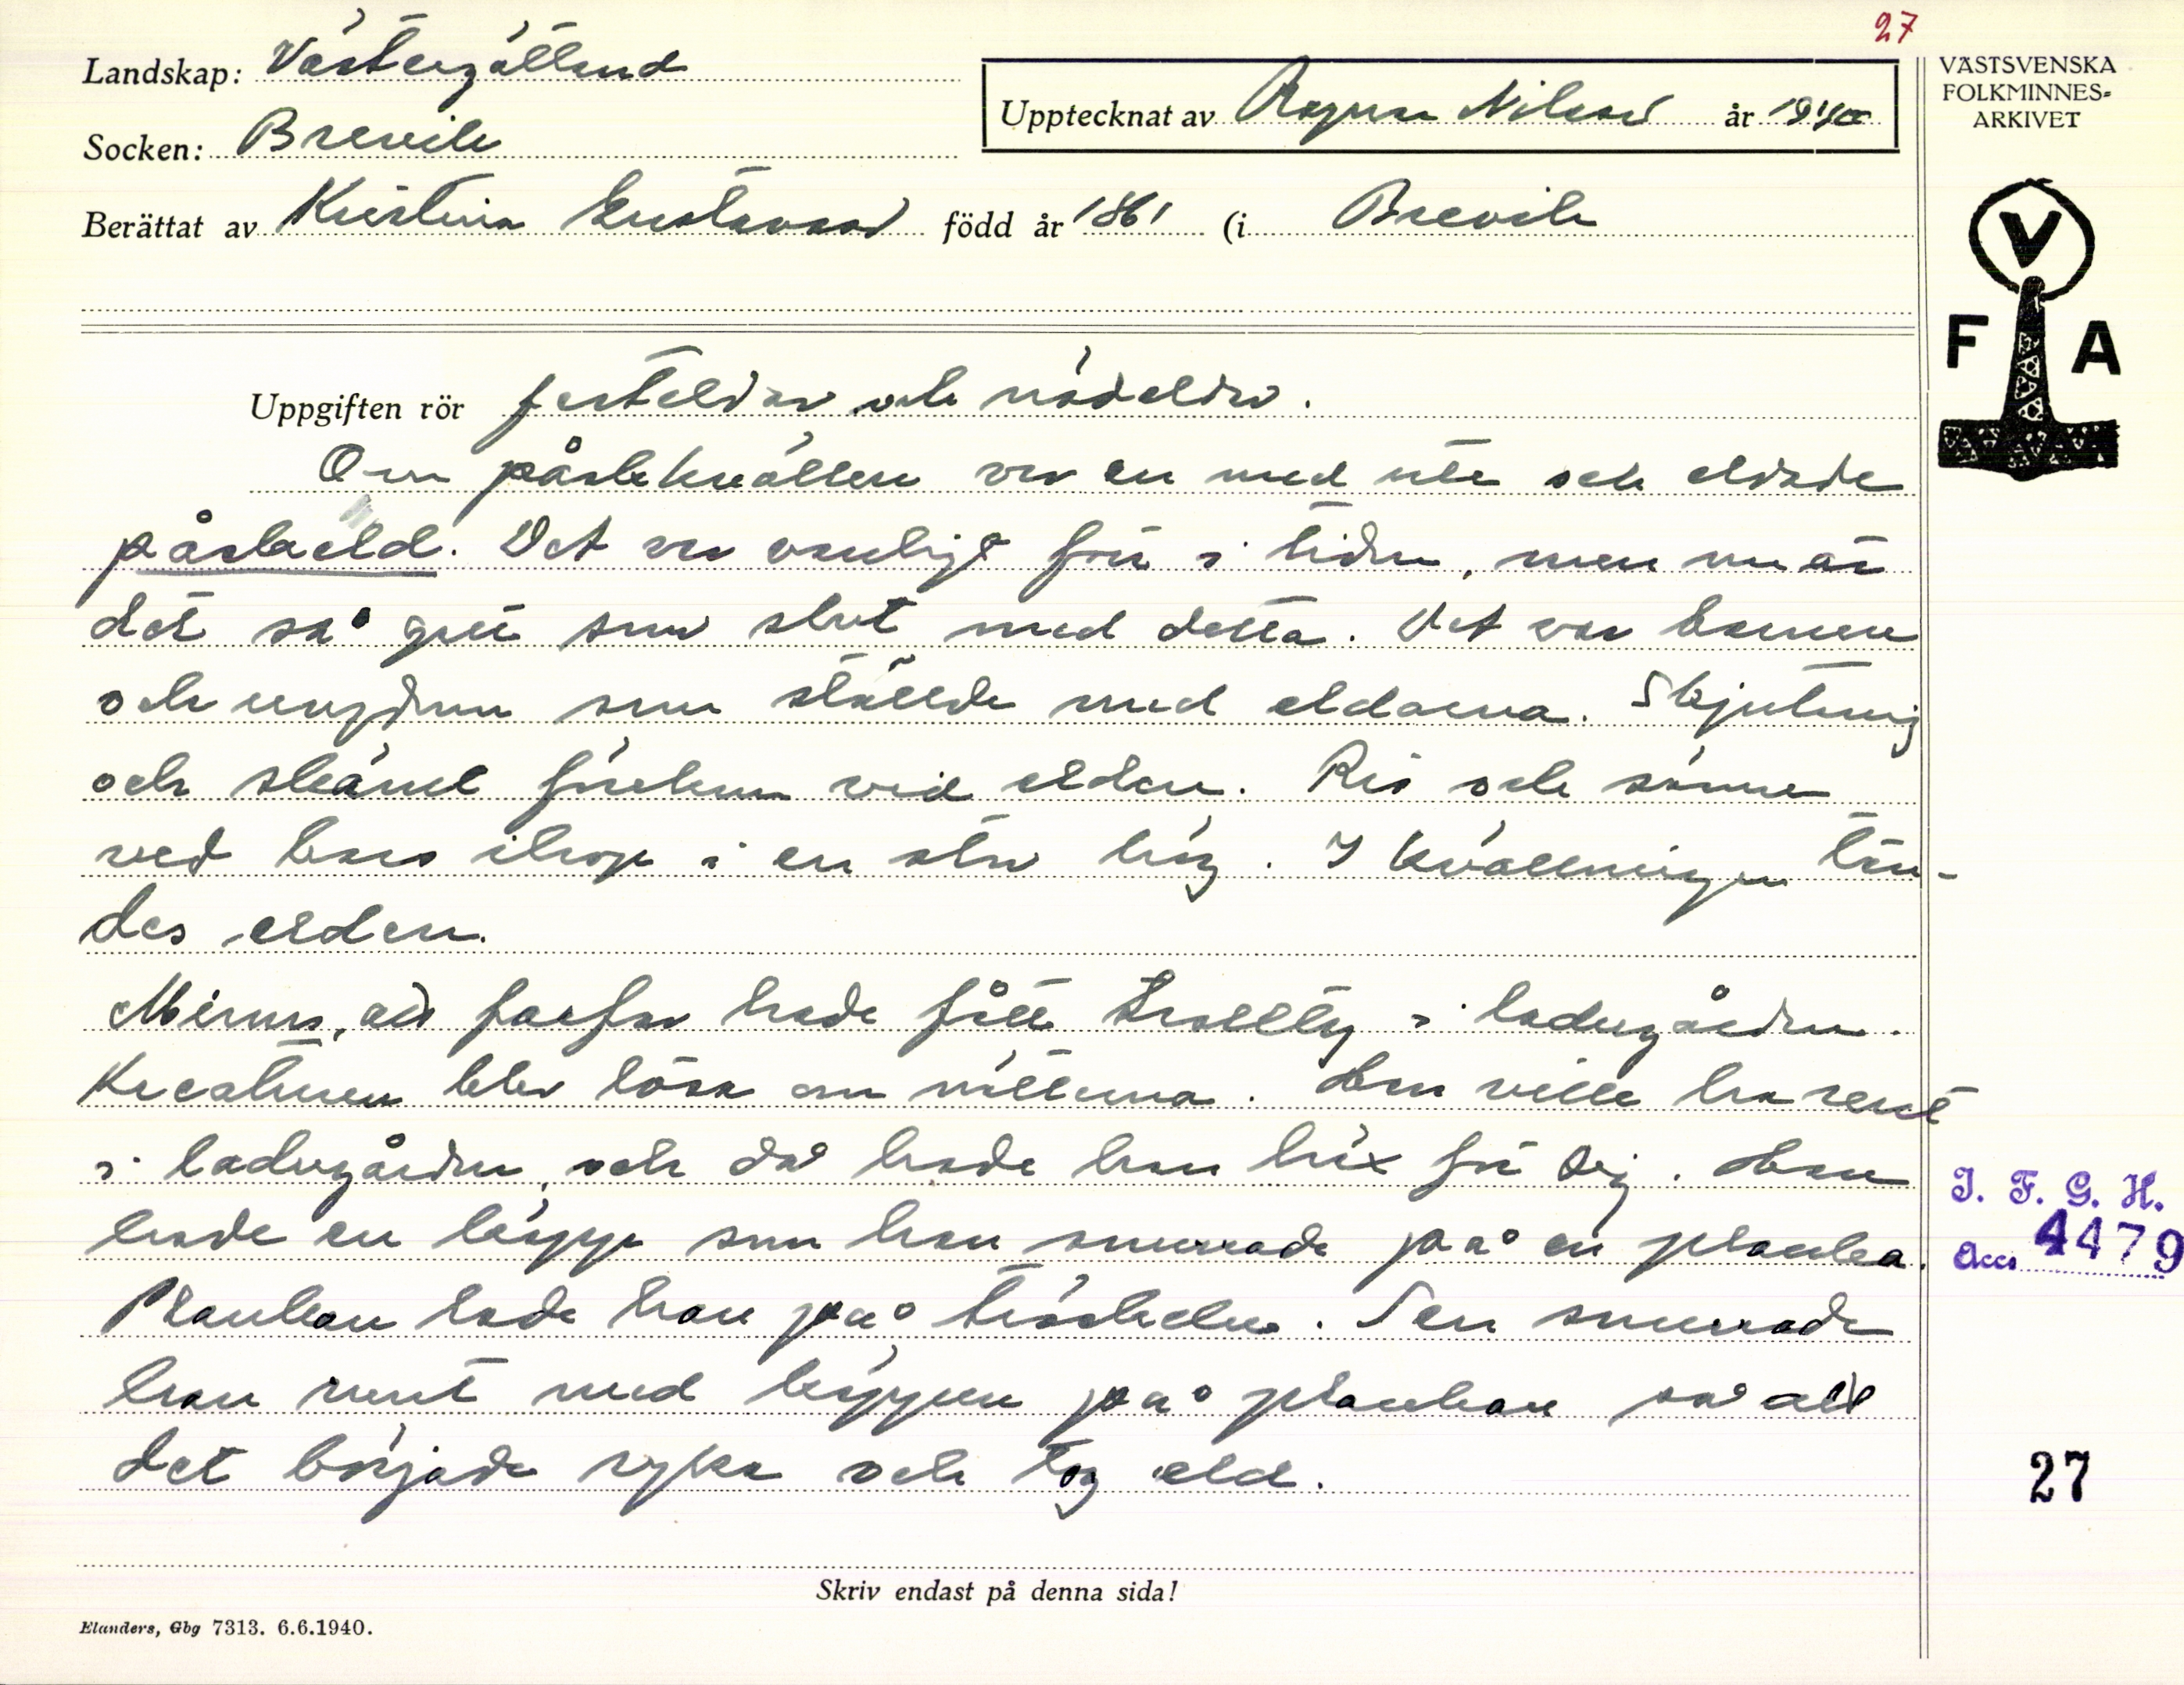 27
Landskap: Västergötland
Socken: Brevik
Upptecknat av Ragnar Nilsson år 1940
Berättat av Kristina Gustavsson född år 1861 (i Brevik
VÄSTSVENSKA
FOLKMINNES-
ARKIVET
V
F A
Uppgiften rör festeldar och nödeldar.
Om påskkvällen var en med ute och eldade
påskaeld. Det var vanligt förr i tiden, men nu är
det så gott som slut med detta. Det var barnen
och ungdom som ställde med eldarna. Skjutning
och skämt förekom vid elden. Ris och sämre
ved bars ihop i en stor hög. I kvällningen tän-
des elden.
Minns, att farfar hade fått trolltyg i ladugården.
Kreaturen blev lösa om nätterna. Han ville ha rent
i ladugården, och då hade han hix för sig. Han
hade en käpp som han snurrade på en planka.
Plankan lade han på tröskeln. Sen snurrade
han runt med käppen på plankan så att
det började ryka och tog eld.
I. F. G. H.
Acc. 4479
27
Skriv endast på denna sida!
Elanders, Gbg 7313. 6.6.1940.